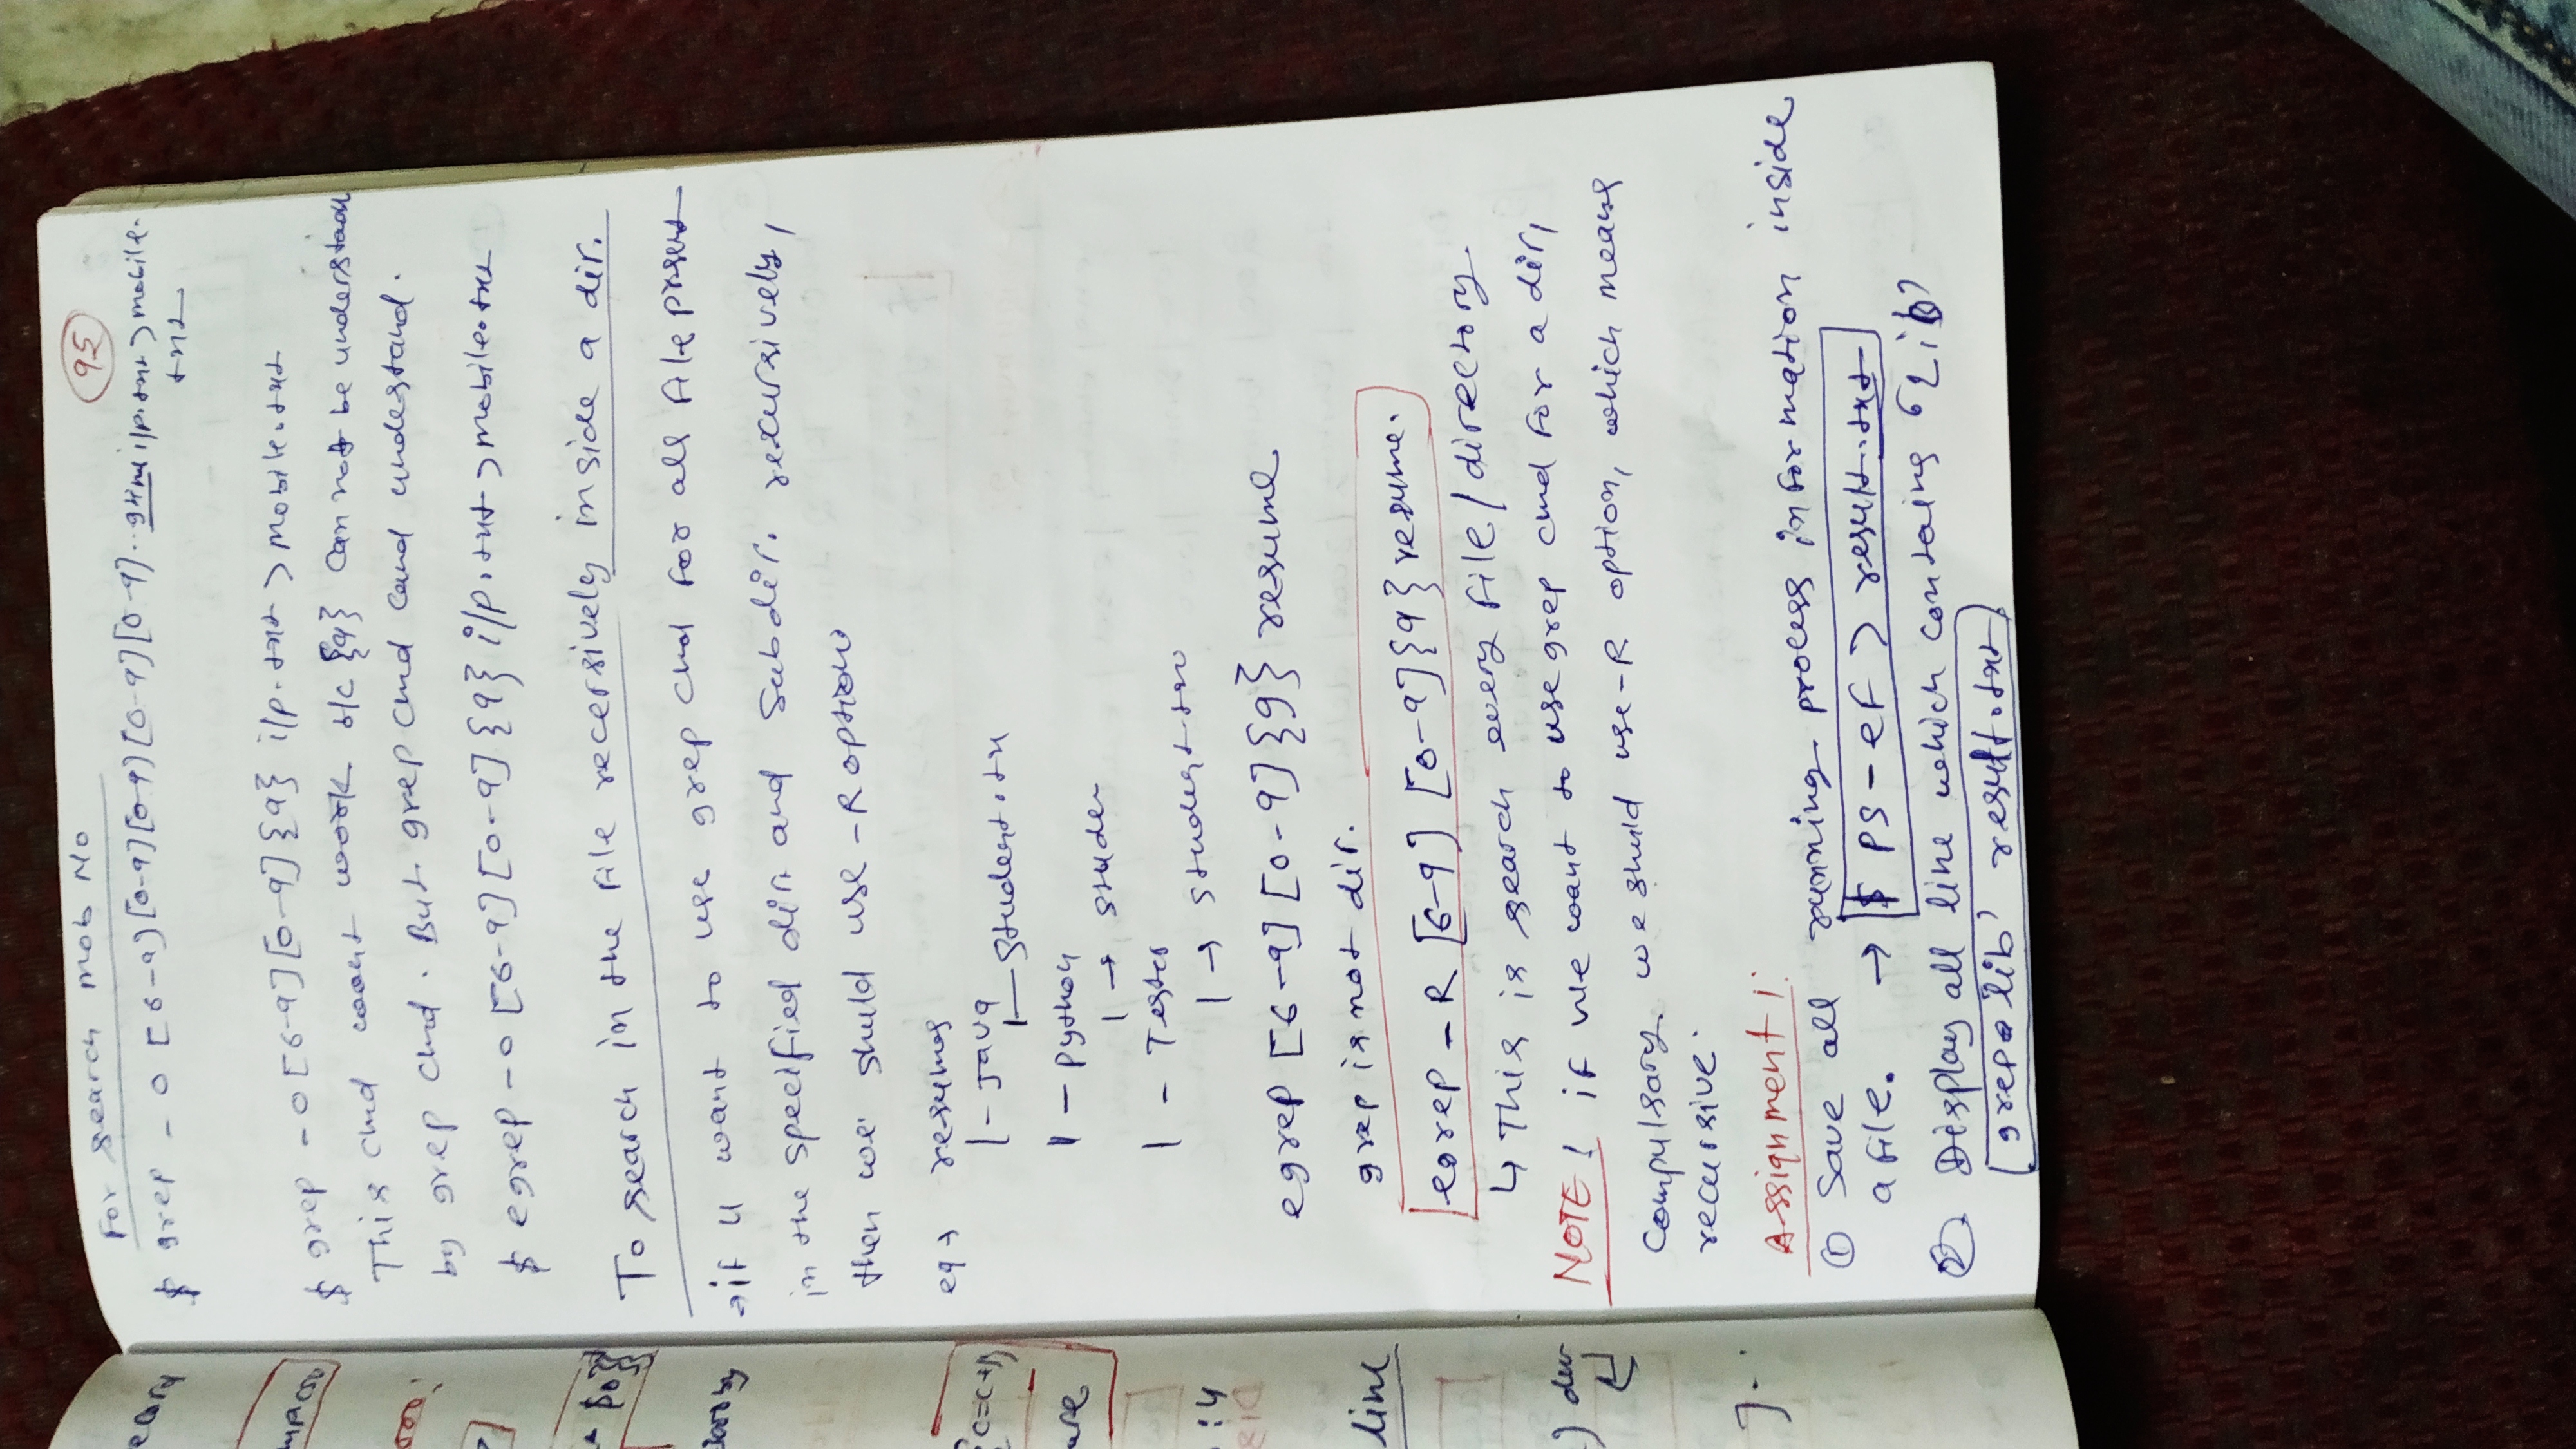 For search mob No
95
$ grep - o [6-9][0-9][0-9][0-9][0-9].. 9time i/p.txt > mobile.
txt
$ grep -o [6-9][0-9]{9} i/p.txt > mobile.txt
This cmd wont work b/c {9} can not be understand
by grep cmd. But grep cmd cand understand.
$ egrep -o [6-9][0-9]{9} i/p.txt > mobile.txt
To search in the file recersively inside a dir.
→ if u want to use grep cmd for all file present
in the specified dir. and subdir. recursively,
then we shuld use -R option
eg → resumes
|- Java
|— Student.tx
| - python
| → studen
| - Tester
| → student.
egrep [6-9][0-9]{9} resume
grep is not dir.
egrep -R [6-9] [0-9]{9} resume.
↳ This is search every file/directory.
NOTE! if we want to use grep cmd for a dir,
Compulsary. we shuld use -R option, which means
recursive.
Assignment 1:
① Save all running process information inside
a file. → $ ps -ef > result.txt
②. Display all line which contains 'Lib'
grep 'lib' result.txt
line
:4
c=c+1